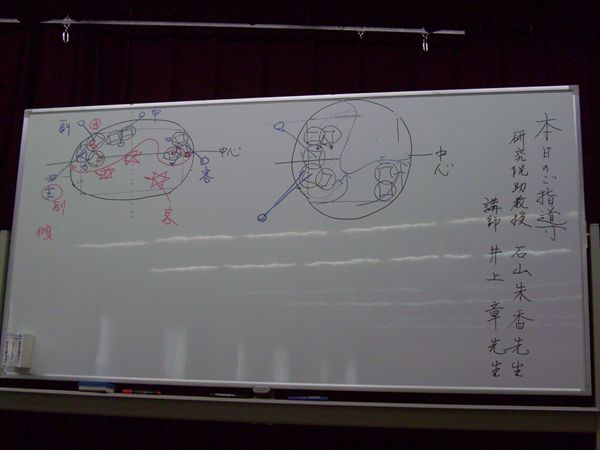 本日のご指導
研究院助教授 石山朱香先生
講師 井上 章先生
中
副
主
中心
客
主
副
客
傾
中心